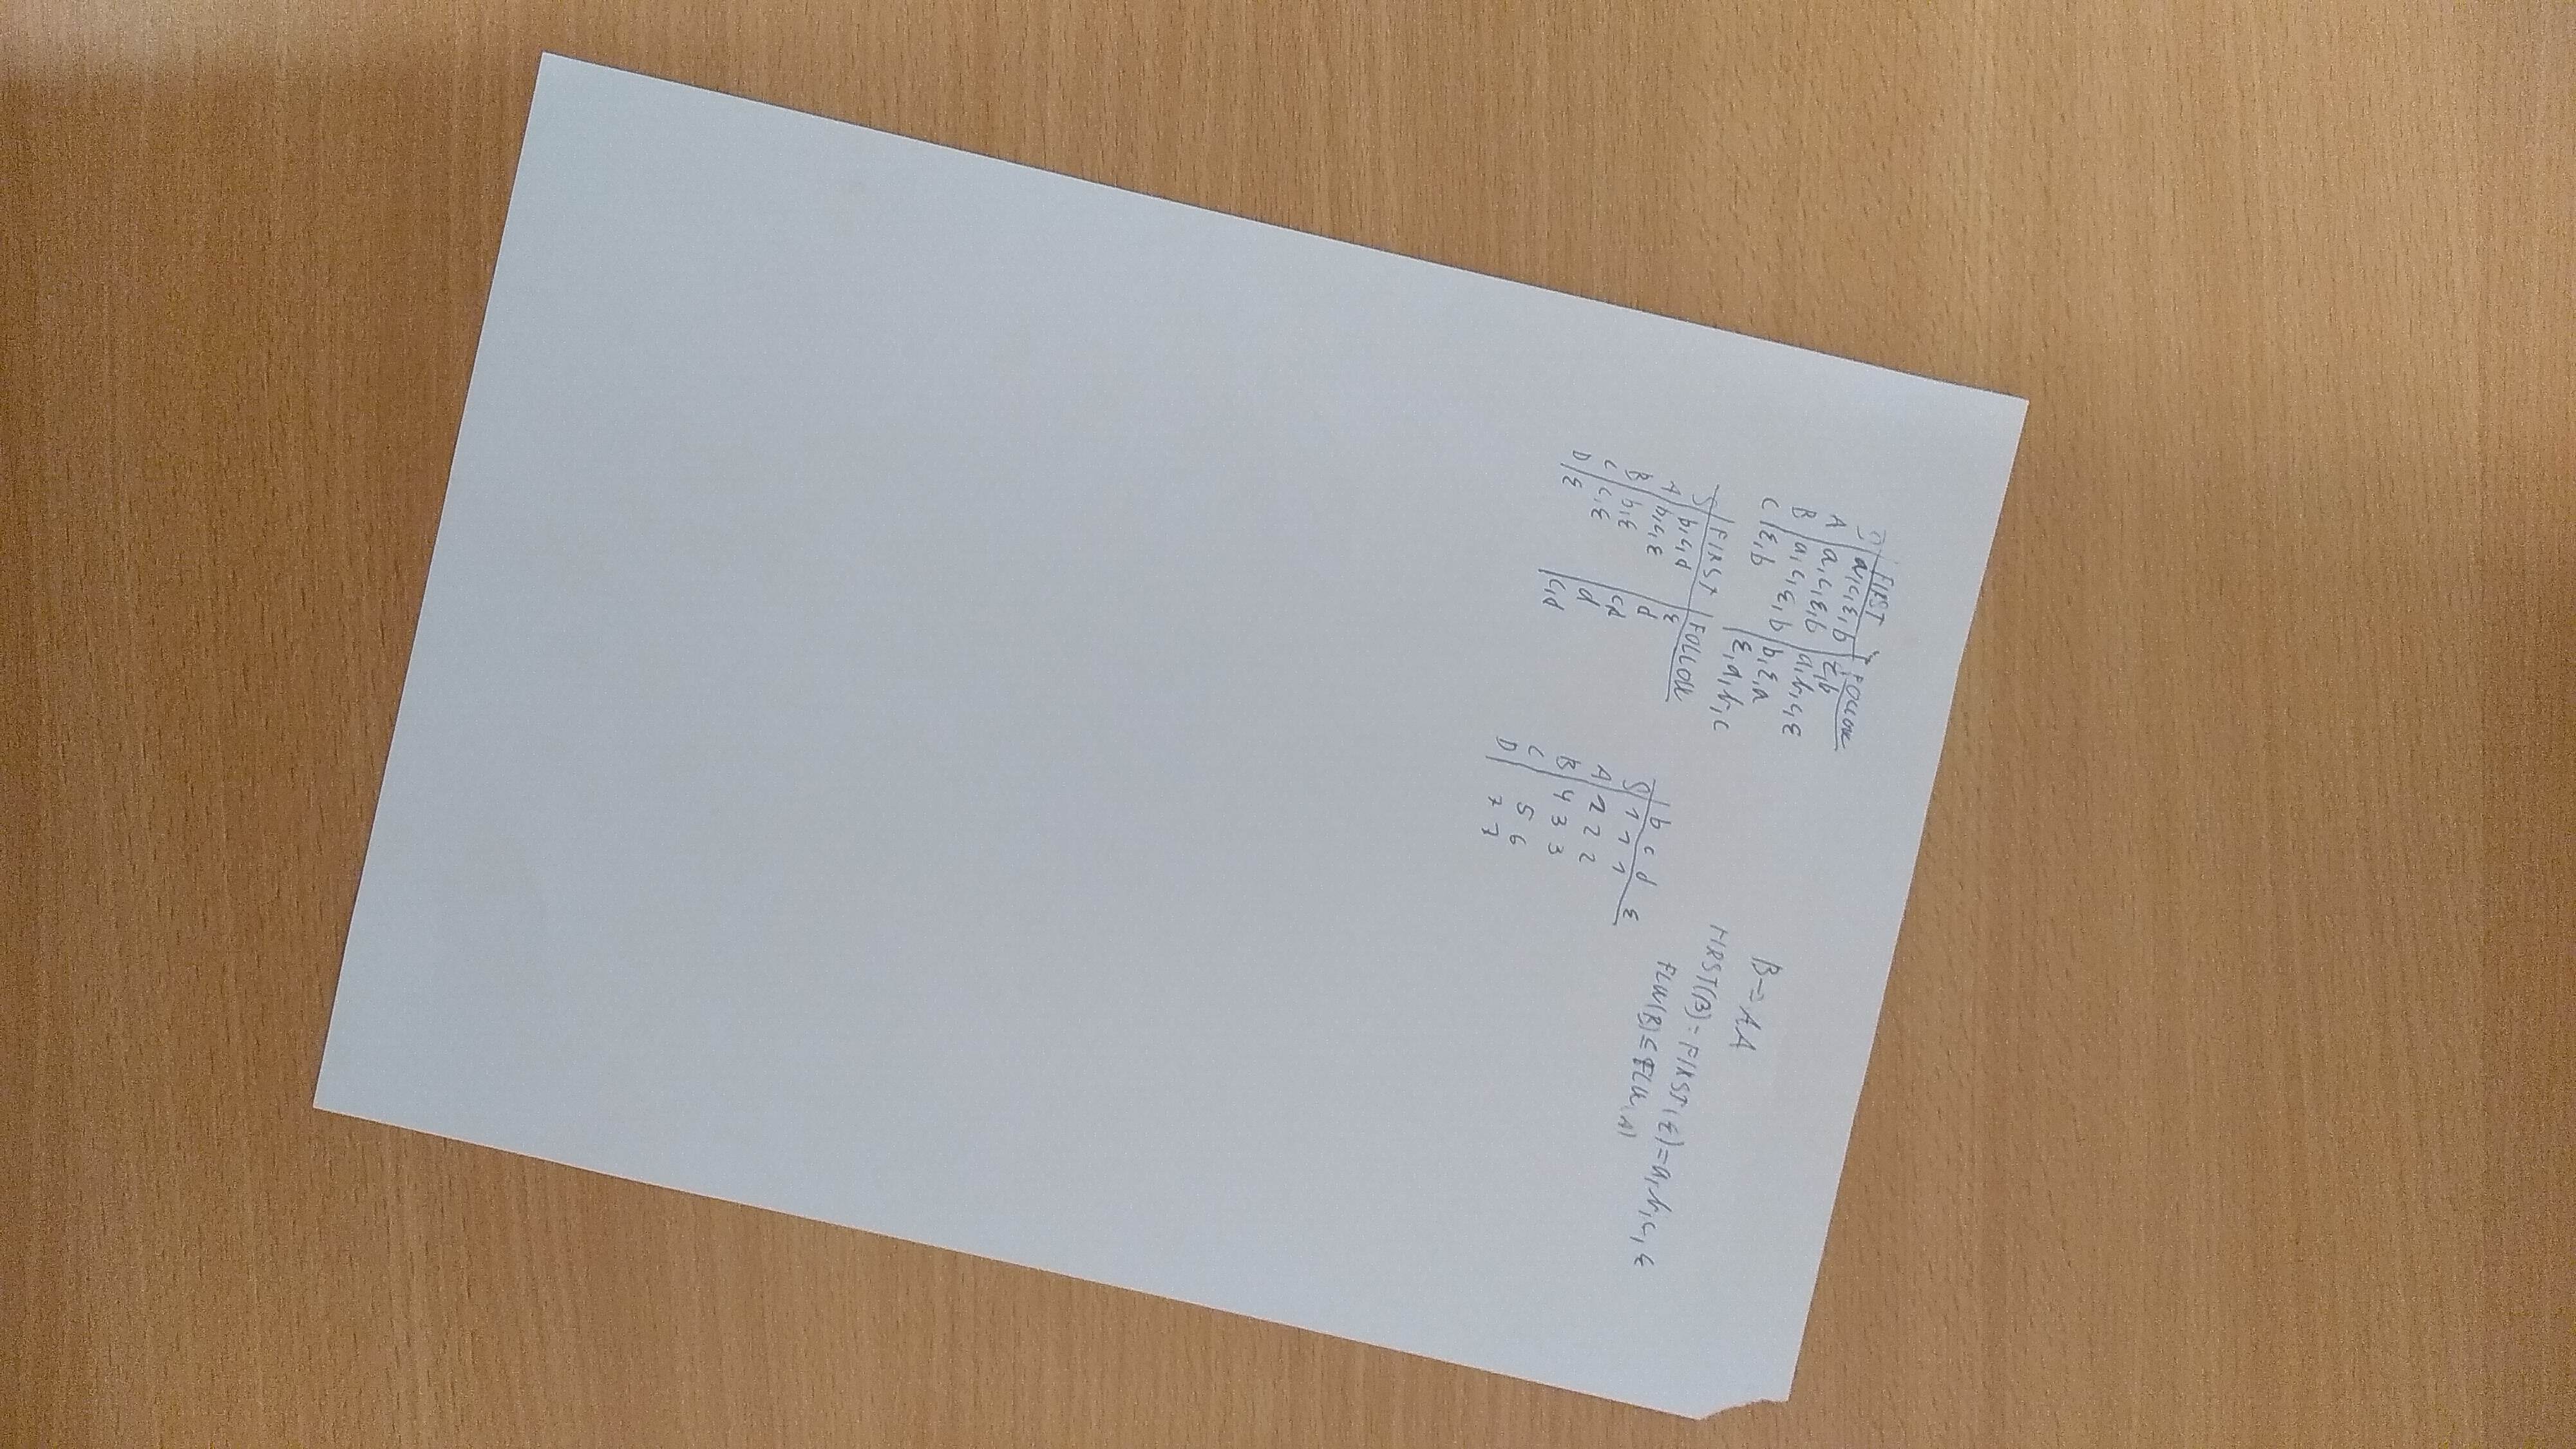 FIRST FOLLOW
S a,c,ε,b ε,b
A a,c,ε,b a,b,c,ε
B a,c,ε,b b,ε,a
C ε,b ε,a,b,c
FIRST FOLLOW
S b,c,d ε
A b,c,ε d
B b,ε c,d
C c,ε d
D ε c,d
b c d ε
S 1 1 1
A 2 2 2
B 4 3 3
C 5 6
D 7 7
B→AA
FIRST(β)=FIRST(ε)=a,b,c,ε
FLW(B)⊆FLW(A)